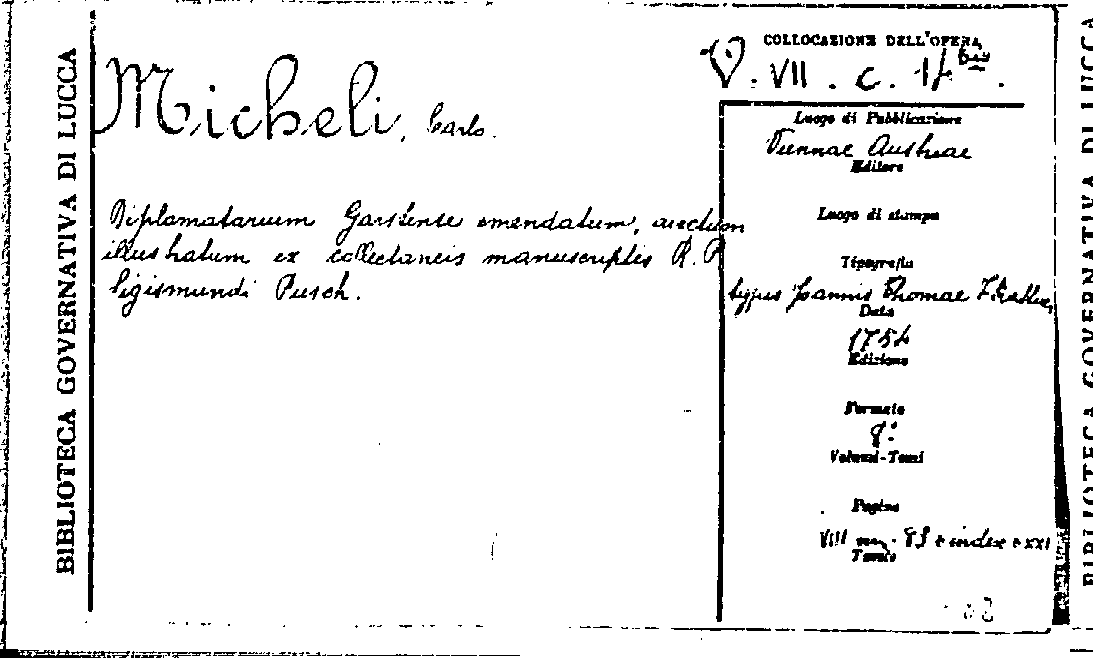 BIBLIOTECA GOVERNATIVA DI LUCCA
Micheli, Carlo.
Diplomatarium Garstense emendatum, auctum
illustratum ex collectaneis manuscriptis R. P
Sigismundi Pusch.
COLLOCAZIONE DELL'OPERA
VII. C. 17 bis
Luogo di Pubblicazione
Viennae Austriae
Editore
Luogo di stampa
Tipografia
typis Joannis Thomae
Data
1754
Edizione
Formato
8:
Volumi-Tomi
Pagine
VIII index e XXI
Tavole
BIBLIOTECA GOVERNATIVA DI LUCCA